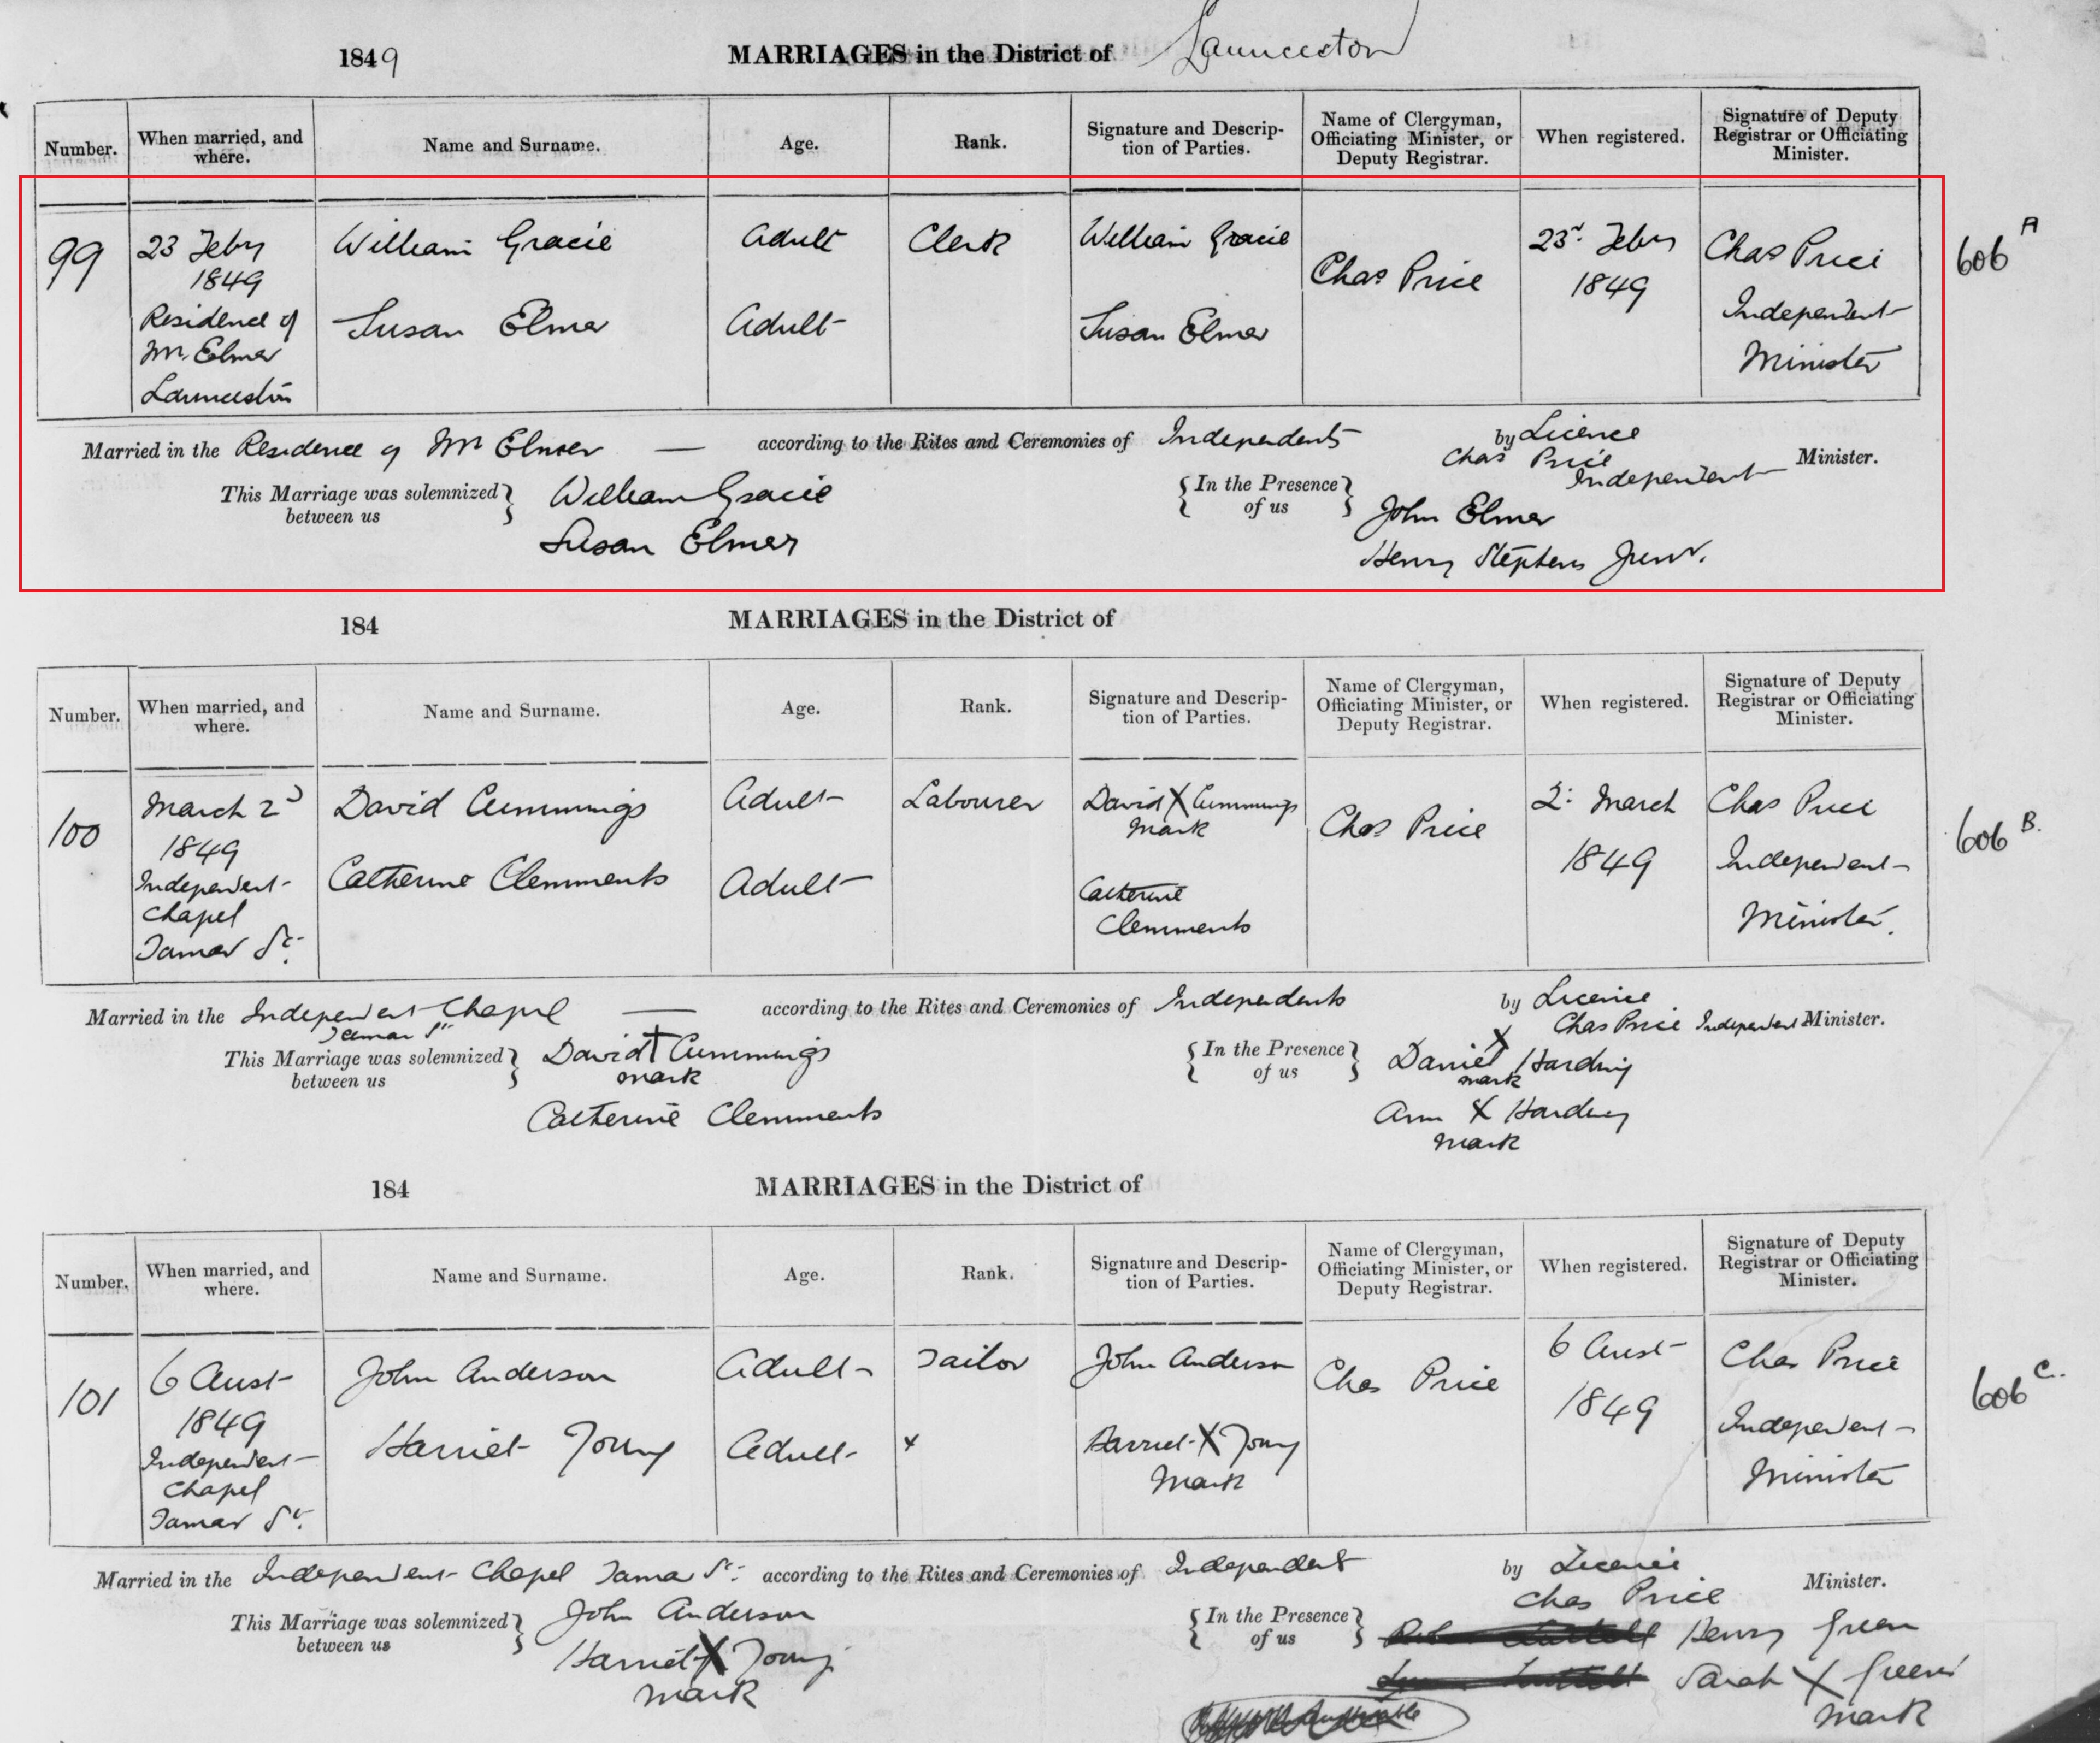 1849 MARRIAGES in the District of Launceston
Number. When married, and where. Name and Surname. Age. Rank. Signature and Description of Parties. Name of Clergyman, Officiating Minister, or Deputy Registrar. When registered. Signature of Deputy Registrar or Officiating Minister.
99 23 Feby William Gracie Adult Clerk William Gracie Chas Price 23d. Feby Chas Price 606 A
1849 1849 Independent
Residence of Susan Elmer Adult Susan Elmer Minister
Mr. Elmer
Launceston
Married in the Residence of Mr Elmer — according to the Rites and Ceremonies of Independents by Licence
Chas Price Independent Minister.
This Marriage was solemnized between us William Gracie In the Presence of us John Elmer
Susan Elmer Henry Stephens Junr.
184 MARRIAGES in the District of
Number. When married, and where. Name and Surname. Age. Rank. Signature and Description of Parties. Name of Clergyman, Officiating Minister, or Deputy Registrar. When registered. Signature of Deputy Registrar or Officiating Minister.
100 March 2d David Cummings Adult Labourer David X Cummings Chas Price 2d March Chas Price 606 B.
1849 mark 1849 Independent
Independent Catherine Clemments Adult Catherine Minister.
Chapel Clemments
Tamar St.
Married in the Independent Chapel — according to the Rites and Ceremonies of Independents by Licence
Tamar St Chas Price Independent Minister.
This Marriage was solemnized between us David X Cummings In the Presence of us Daniel X Harding
mark mark
Catherine Clemments Ann X Harding
mark
184 MARRIAGES in the District of
Number. When married, and where. Name and Surname. Age. Rank. Signature and Description of Parties. Name of Clergyman, Officiating Minister, or Deputy Registrar. When registered. Signature of Deputy Registrar or Officiating Minister.
101 6 Aust John Anderson Adult Tailor John Anderson Chas Price 6 Aust Chas Price 606 C.
1849 1849 Independent
Independent Harriet Young Adult x Harriet X Young Minister
Chapel mark
Tamar St.
Married in the Independent Chapel Tamar St. according to the Rites and Ceremonies of Independent by Licence
Chas Price Minister.
This Marriage was solemnized between us John Anderson In the Presence of us Henry Green
Harriet X Young Sarah X Green
mark mark